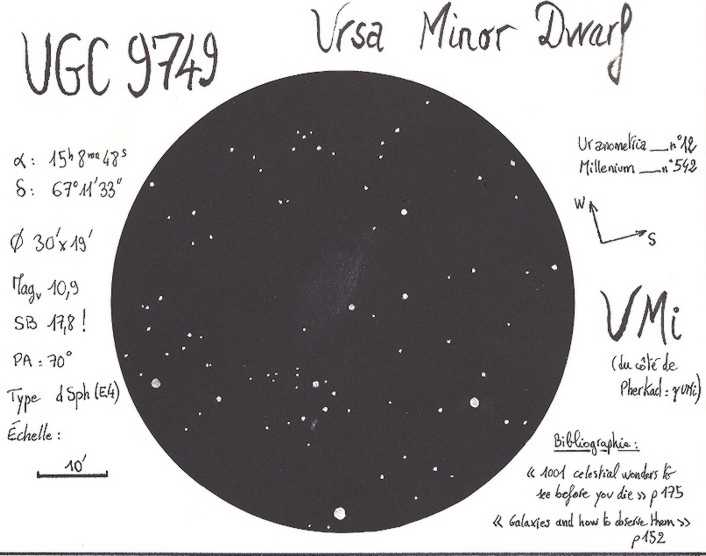 UGC 9749
Ursa Minor Dwarf
α : 15h 8mn 48s
δ : 67°11'33"
Ø 30'x19'
Magv 10,9
SB 17,8 !
PA : 70°
Type dSph (E4)
Échelle :
10'
Uranometria __ n°12
Millenium __ n°542
W
S
UMi
(du côté de
Pherkad : γ UMi)
Bibliographie :
« 1001 celestial wonders to
see before you die » p 175
« Galaxies and how to observe them »
p 152